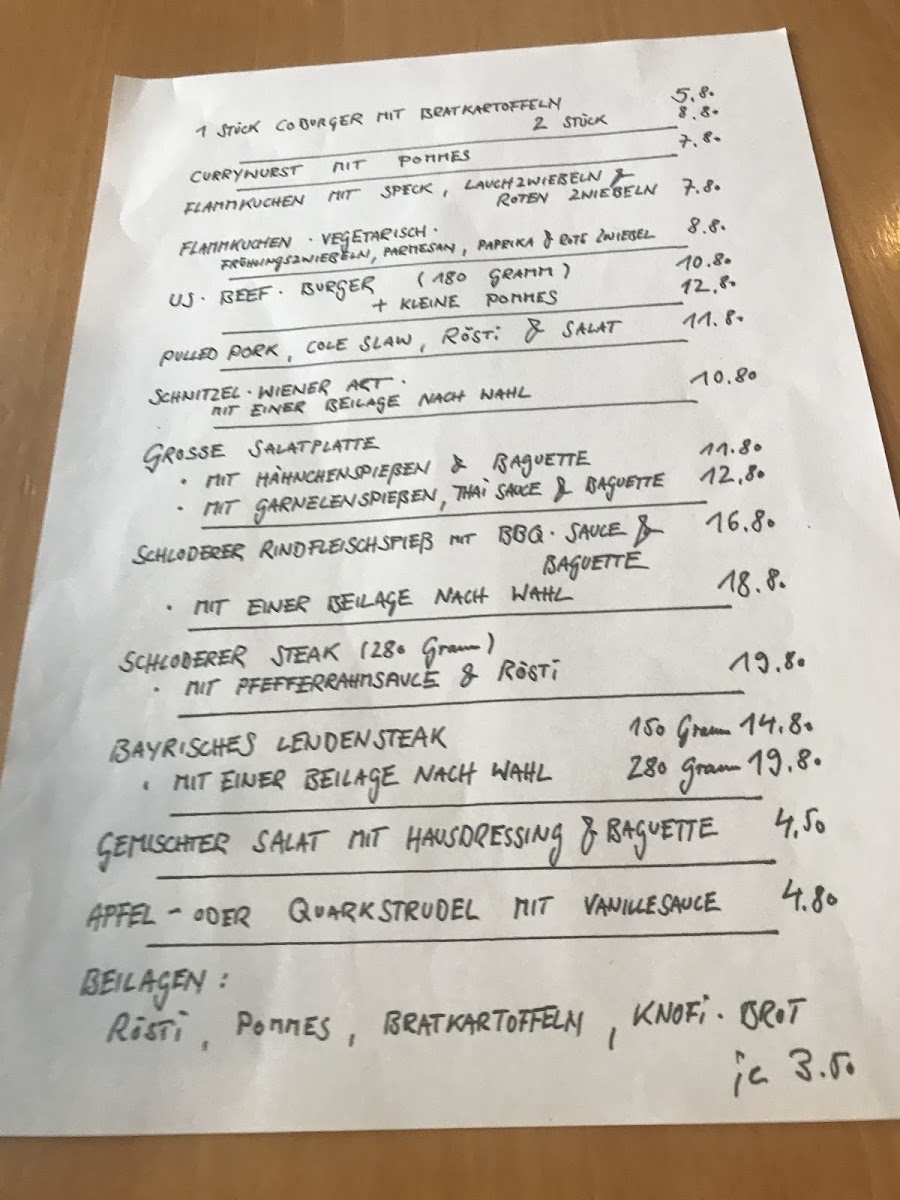 1 STÜCK COBURGER MIT BRATKARTOFFELN 5.80
2 STÜCK 8.80
CURRYWURST MIT POMMES 7.80
FLAMMKUCHEN MIT SPECK, LAUCHZWIEBELN &
ROTEN ZWIEBELN 7.80
FLAMMKUCHEN · VEGETARISCH ·
FRÜHLINGSZWIEBELN, PARMESAN, PAPRIKA & ROTE ZWIEBEL 8.80
US · BEEF · BURGER (180 GRAMM) 10.80
+ KLEINE POMMES 12.80
PULLED PORK, COLE SLAW, RÖSTI & SALAT 11.80
SCHNITZEL · WIENER ART ·
MIT EINER BEILAGE NACH WAHL 10.80
GROSSE SALATPLATTE
· MIT HÄHNCHENSPIEßEN & BAGUETTE 11.80
· MIT GARNELENSPIEßEN, THAI SAUCE & BAGUETTE 12.80
SCHLODERER RINDFLEISCHSPIEß MIT BBQ · SAUCE & 16.80
BAGUETTE
· MIT EINER BEILAGE NACH WAHL 18.80
SCHLODERER STEAK (280 Gramm)
· MIT PFEFFERRAHMSAUCE & RÖSTI 19.80
BAYRISCHES LENDENSTEAK 150 Gramm 14.80
· MIT EINER BEILAGE NACH WAHL 280 gramm 19.80
GEMISCHTER SALAT MIT HAUSDRESSING & BAGUETTE 4,50
APFEL - ODER QUARKSTRUDEL MIT VANILLESAUCE 4.80
BEILAGEN :
RÖSTI, POMMES, BRATKARTOFFELN, KNOFI · BROT
je 3.50